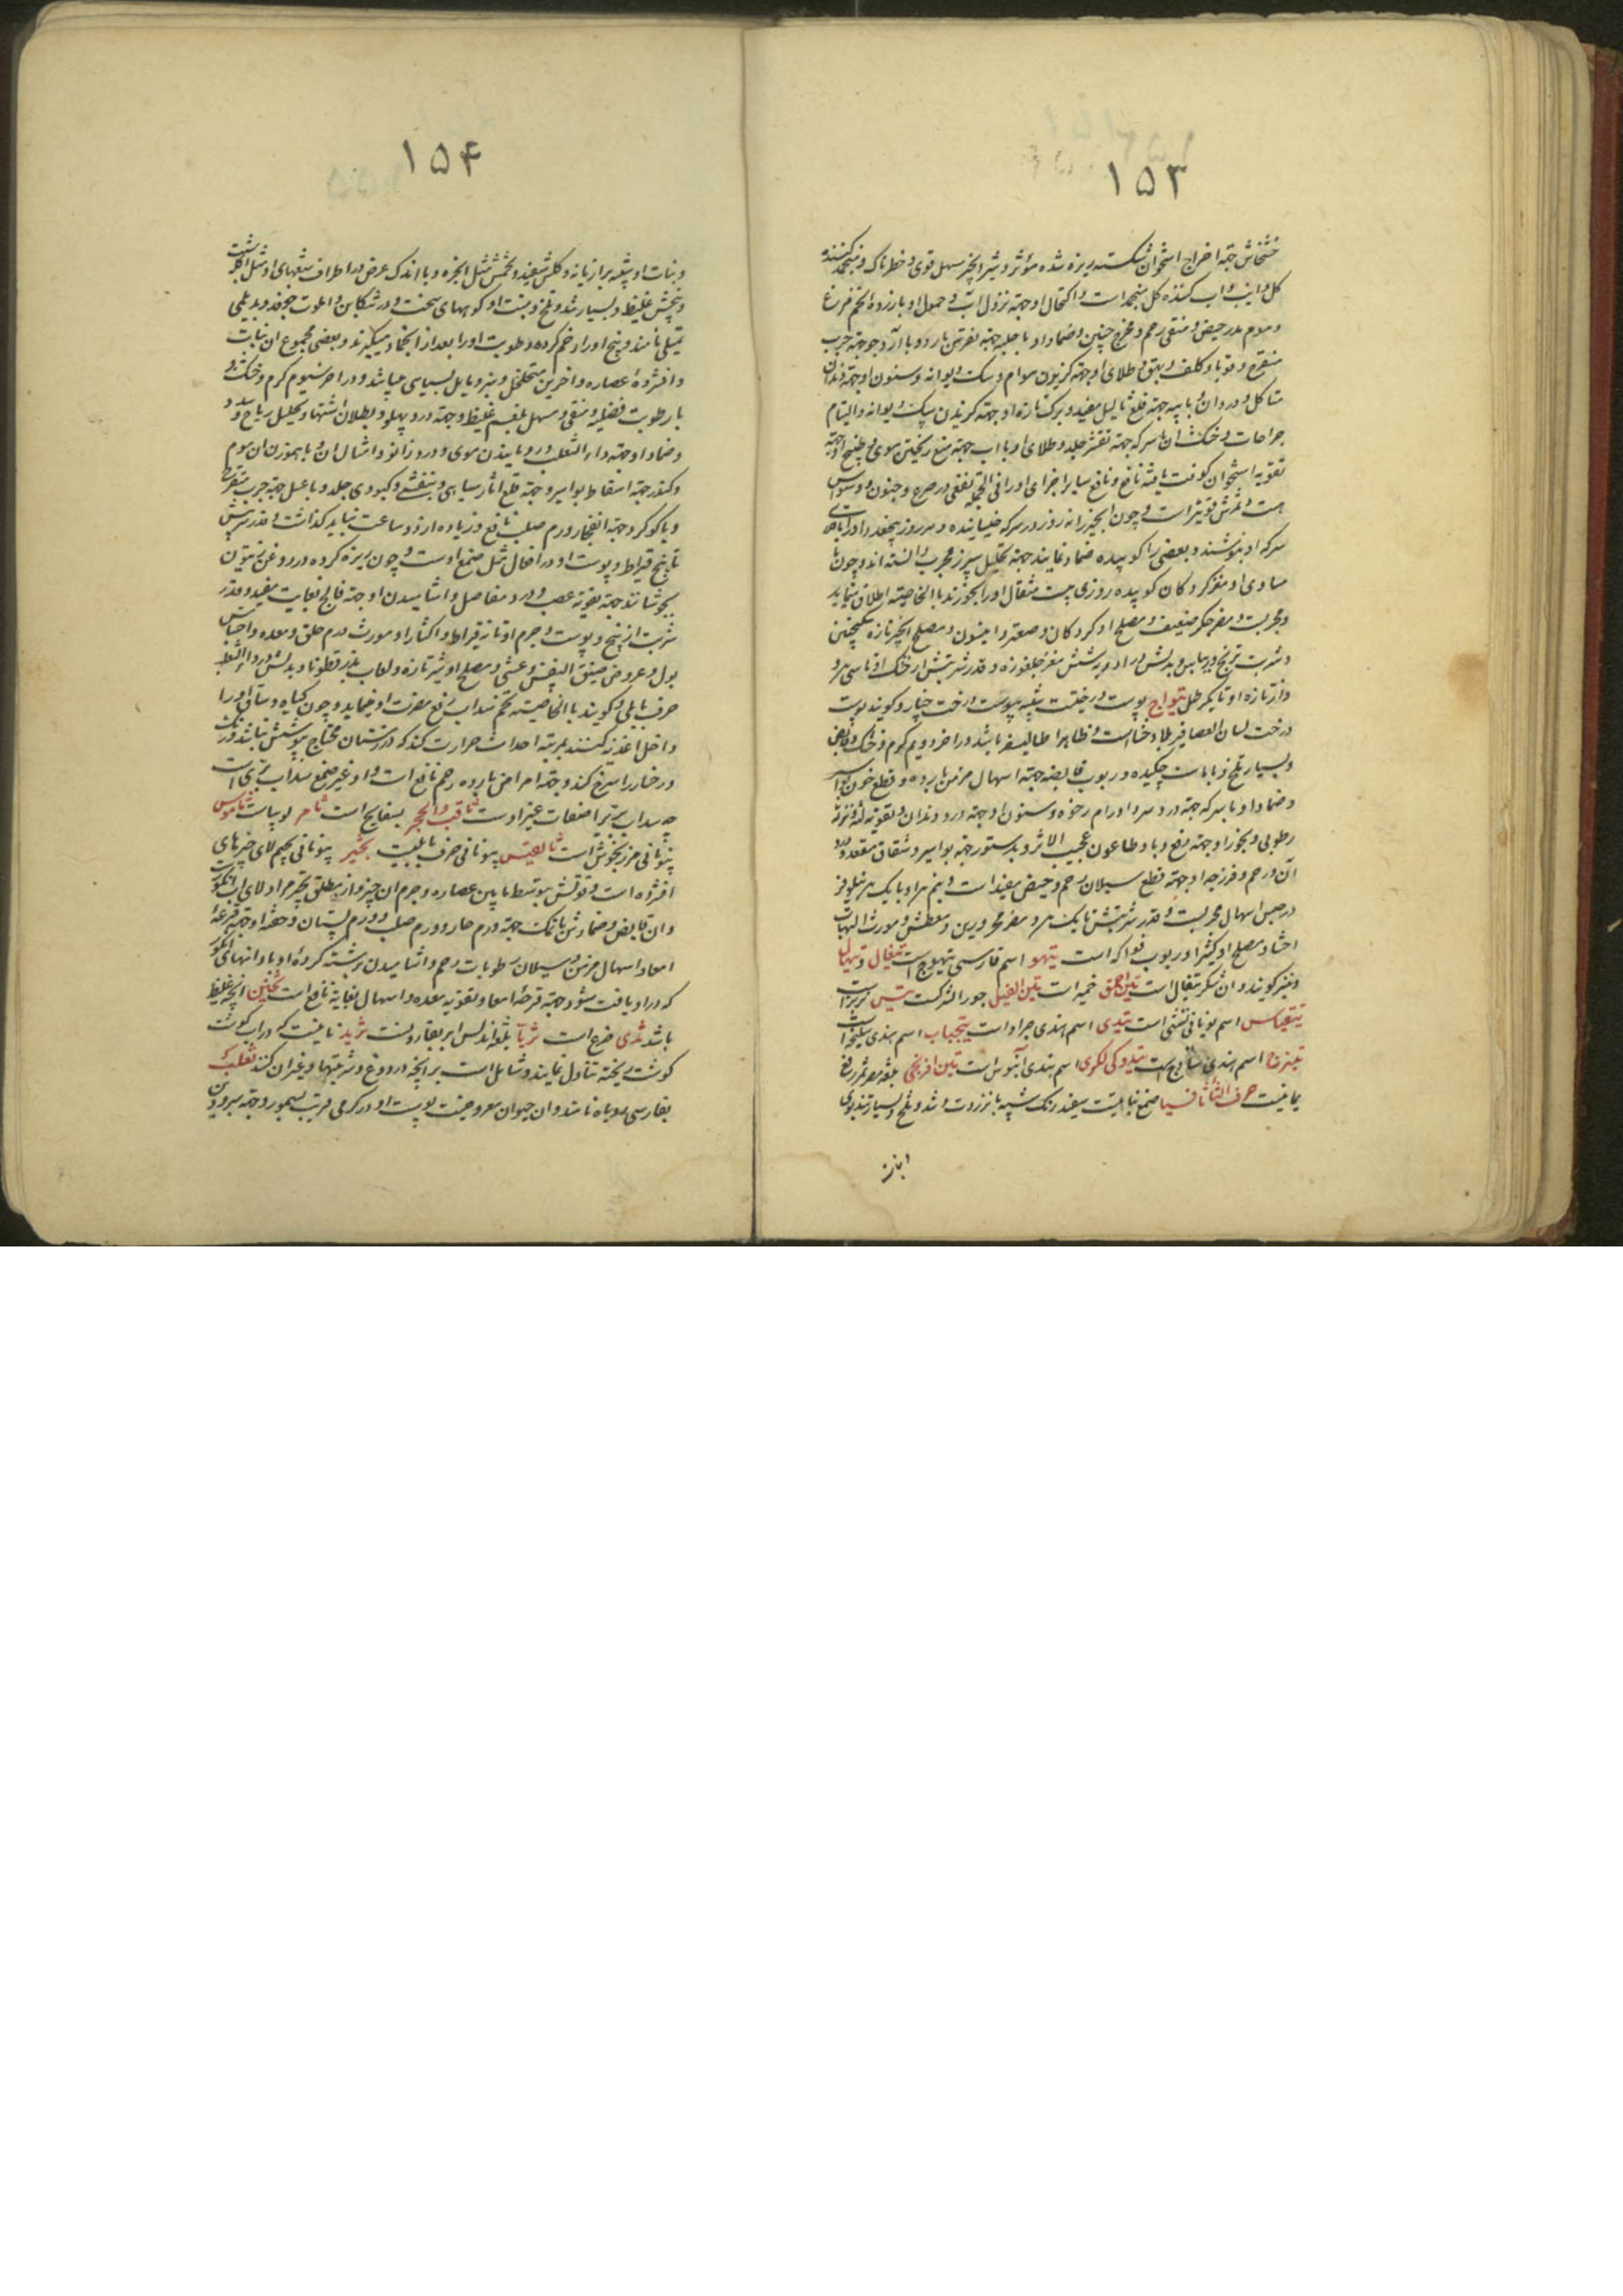 ۱۵۳
خشخاش جهة اخراج استخوان شکسته ریزه شده مؤثر و شیر انجیر مسهل قوی و خطرناک و منجمد کننده
کل ذایب و اب کننده کل منجمد است و اکتحال او جهة نزول اب و حمول او با زرده تخم مرغ
و موم مدر حیض و منقی رحم و مخرج جنین و ضماد او با حلبه جهة نقرس بارد و با آرد جو جهة جرب
متقرح و قوبا و کلف و بهق و طلای او جهة کزیدن هوام و سک دیوانه و سنون او جهة دندان
متاکل و درد ان و با پیه جهة قلع ثالیل مفید و برک تازه او جهة کزیدن سک دیوانه و التیام
جراحات و خشک ان با سرکه جهة تقشر جلد و طلای او با اب جهة منع ریختن موی و طبیخ او جهة
تقویة استخوان کوفت یافته نافع و نافع سایر اجزای او را فی الجمله نفعی در صرع و جنون و وسواس
هست و ثمرش قویتر است و چون انجیر را نه روز در سرکه خیسانیده و هر روز پنجعدد او را با
سرکه او بنوشند و بعضی را کوبیده ضماد نمایند جهة تحلیل سپرز مجرب دانسته اند و چون با
مساوی او مغز کردکان کوبیده روزی بیست مثقال او را بخورند بالخاصیته اطلاق مینماید
و مجربست و مضر جکر ضعیف و مصلح او کردکان و صعتر و انیسون و مصلح انجیر تازه سکنجبین
و شربت ترنج و ریباس و بدلش در ادویه شش مغز جلغوزه و قدر شربتش از خشک او تا سی عدد
و از تازه او تا یک رطل تیواج پوست درختیست شبیه بپوست درخت خیار و کویند پوست
درخت لسان العصافیر بلاد خطا است و ظاهرا طالیسفر باشد در اخر دویم کرم و خشک و قابض
و بسیار تلخ و با باست چکیده و ربوب قابضه جهة اسهال مزمن بارده و قطع خون بواسیر
و ضماد او با سرکه جهة درد سر و اورام رخوه و سنون او جهة درد دندان و تقویة لثه و نزله
رطوبی و بخور او جهة دفع وبا و طاعون عجیب الاثر و بدستور جهة بواسیر و شقاق مقعد و درد
آن و رحم و فرزجه او جهة قطع سیلان رحم و حیض مفید است و نیم مراو با یک مر نیلوفر
در حبس اسهال مجربست و قدر شربتش تا یک مر و مضر محرورین و معطش و مورث التهاب
احشا و مصلح او کثیرا و ربوب فواکه است تیهو اسم فارسی تیهوج است تیغال و تیهال
و نیز کویند و ان شکر تیغال است تین احمق جمیز است تین الفیل جوز الشرک است تیس بز نر است
تیتیماس اسم یونانی تفشی است تیدی اسم هندی جراد است تیجباب اسم هندی سلیخه است
تیزج اسم هندی ساذج است تیدوکی لکری اسم هندی آبنوس است تین افرنجی بلغة مصر ثمر رقع
یمانیست حرف الثاء ثافسیا صمغ نباتیست سفید رنک شبیه بانزروت و تند و تلخ و بسیار تند بوی
و نبات
۱۵۴
و نبات او شبیه برازیانه و کلش سفید و تخمش مثل انجره و با اندک عرض در اطراف شعبهای او مثل اکلیل شبت
و بیخش غلیظ و بسیار تند و تلخ و منبت او کوههای سخت و در تنکابن و الموت جوفد و بدیلمی
تمیلی نامند و بیخ او را زخم کرده رطوبت او را بعد از انجماد میکیرند و بعضی مجموع ان نبات
و افشرده عصاره و اخرین متخلخل و سبز و مایل بسیاهی میباشد و در اخر سیوم کرم و خشک و
با رطوبت فضلیه و منقی و مسهل بلغم غلیظ و جهة درد پهلو و بطلان اشتها و تحلیل ریاح و سدد
و ضماد او جهة داء الثعلب و رویانیدن موی و درد زانو و امثال ان و با هموزن ان موم
و کندر جهة اسقاط بواسیر و جهة قلع اثار سیاهی و بنفشی و کبودی جلد و با عسل جهة جرب متقرح
و با کوکرد جهة انفجار ورم صلب نافع و زیاده از دو ساعت نباید کذاشت و قدر شربتش
تا پنج قیراط و پوست او در افعال مثل صمغ اوست و چون ریزه کرده در روغن زیتون
بجوشانند جهة تقویة عصب و درد مفاصل و اشامیدن او جهة فالج بغایت مفید و قدر
شربت از بیخ و پوست و جرم او تا نه قیراط و اکثار او مورث ورم حلق و معده و احتباس
بول و عروض ضیق النفس و غشی و مصلح او شیر تازه و لعاب بذر قطونا و بدلش در داء الثعلب
حرف بابلی و کویند بالخاصیته تخم سداب رفع مضرت او مینماید و چون کیاه و ساق او را
داخل اغذیه کنند بمرتبه احداث حرارت کند که در زمستان محتاج بپوشش نباشد و رنک
رخسار را سرخ کند و جهة امراض بارده رحم نافع است و او غیر صمغ سداب بری است
چه سداب بری از صفات غیر اوست ثاقب الحجر بسفایج است ثامر لوبیاست ثاموس
بیونانی مرزنجوش است ثالفیس بیونانی حرف بابلیست بجثیر بیونانی بجیم لای خرمای
افشرده است و قوتش متوسط مابین عصاره و جرم ان چیز و از مطلق ثجیر مراد لای اب انکورست
و ان قابض و ضمادش با نمک جهة ورم حار و ورم صلب و ورم پستان و حقنه او جهة قرحه
امعا و اسهال مزمن و سیلان رطوبات رحم و اشامیدن برشته کرده او با دانهای انکور
که در او یافت شود جهة قرحه امعا و تقویة معده و اسهال بغایة نافع است ثخین انچه غلیظ
باشد ثدی ضرع است ثریا بلغة اندلس ابر بقارونست ثرید نانیست که در اب کوشت
کوشت پخته تناول نمایند و شاملست بر انچه در دوغ و شربتها و غیر ان کنند ثعلب
بفارسی روباه نامند و ان حیوان معروفیست پوست او در کرمی قریب بسمور و جهة مبرودین